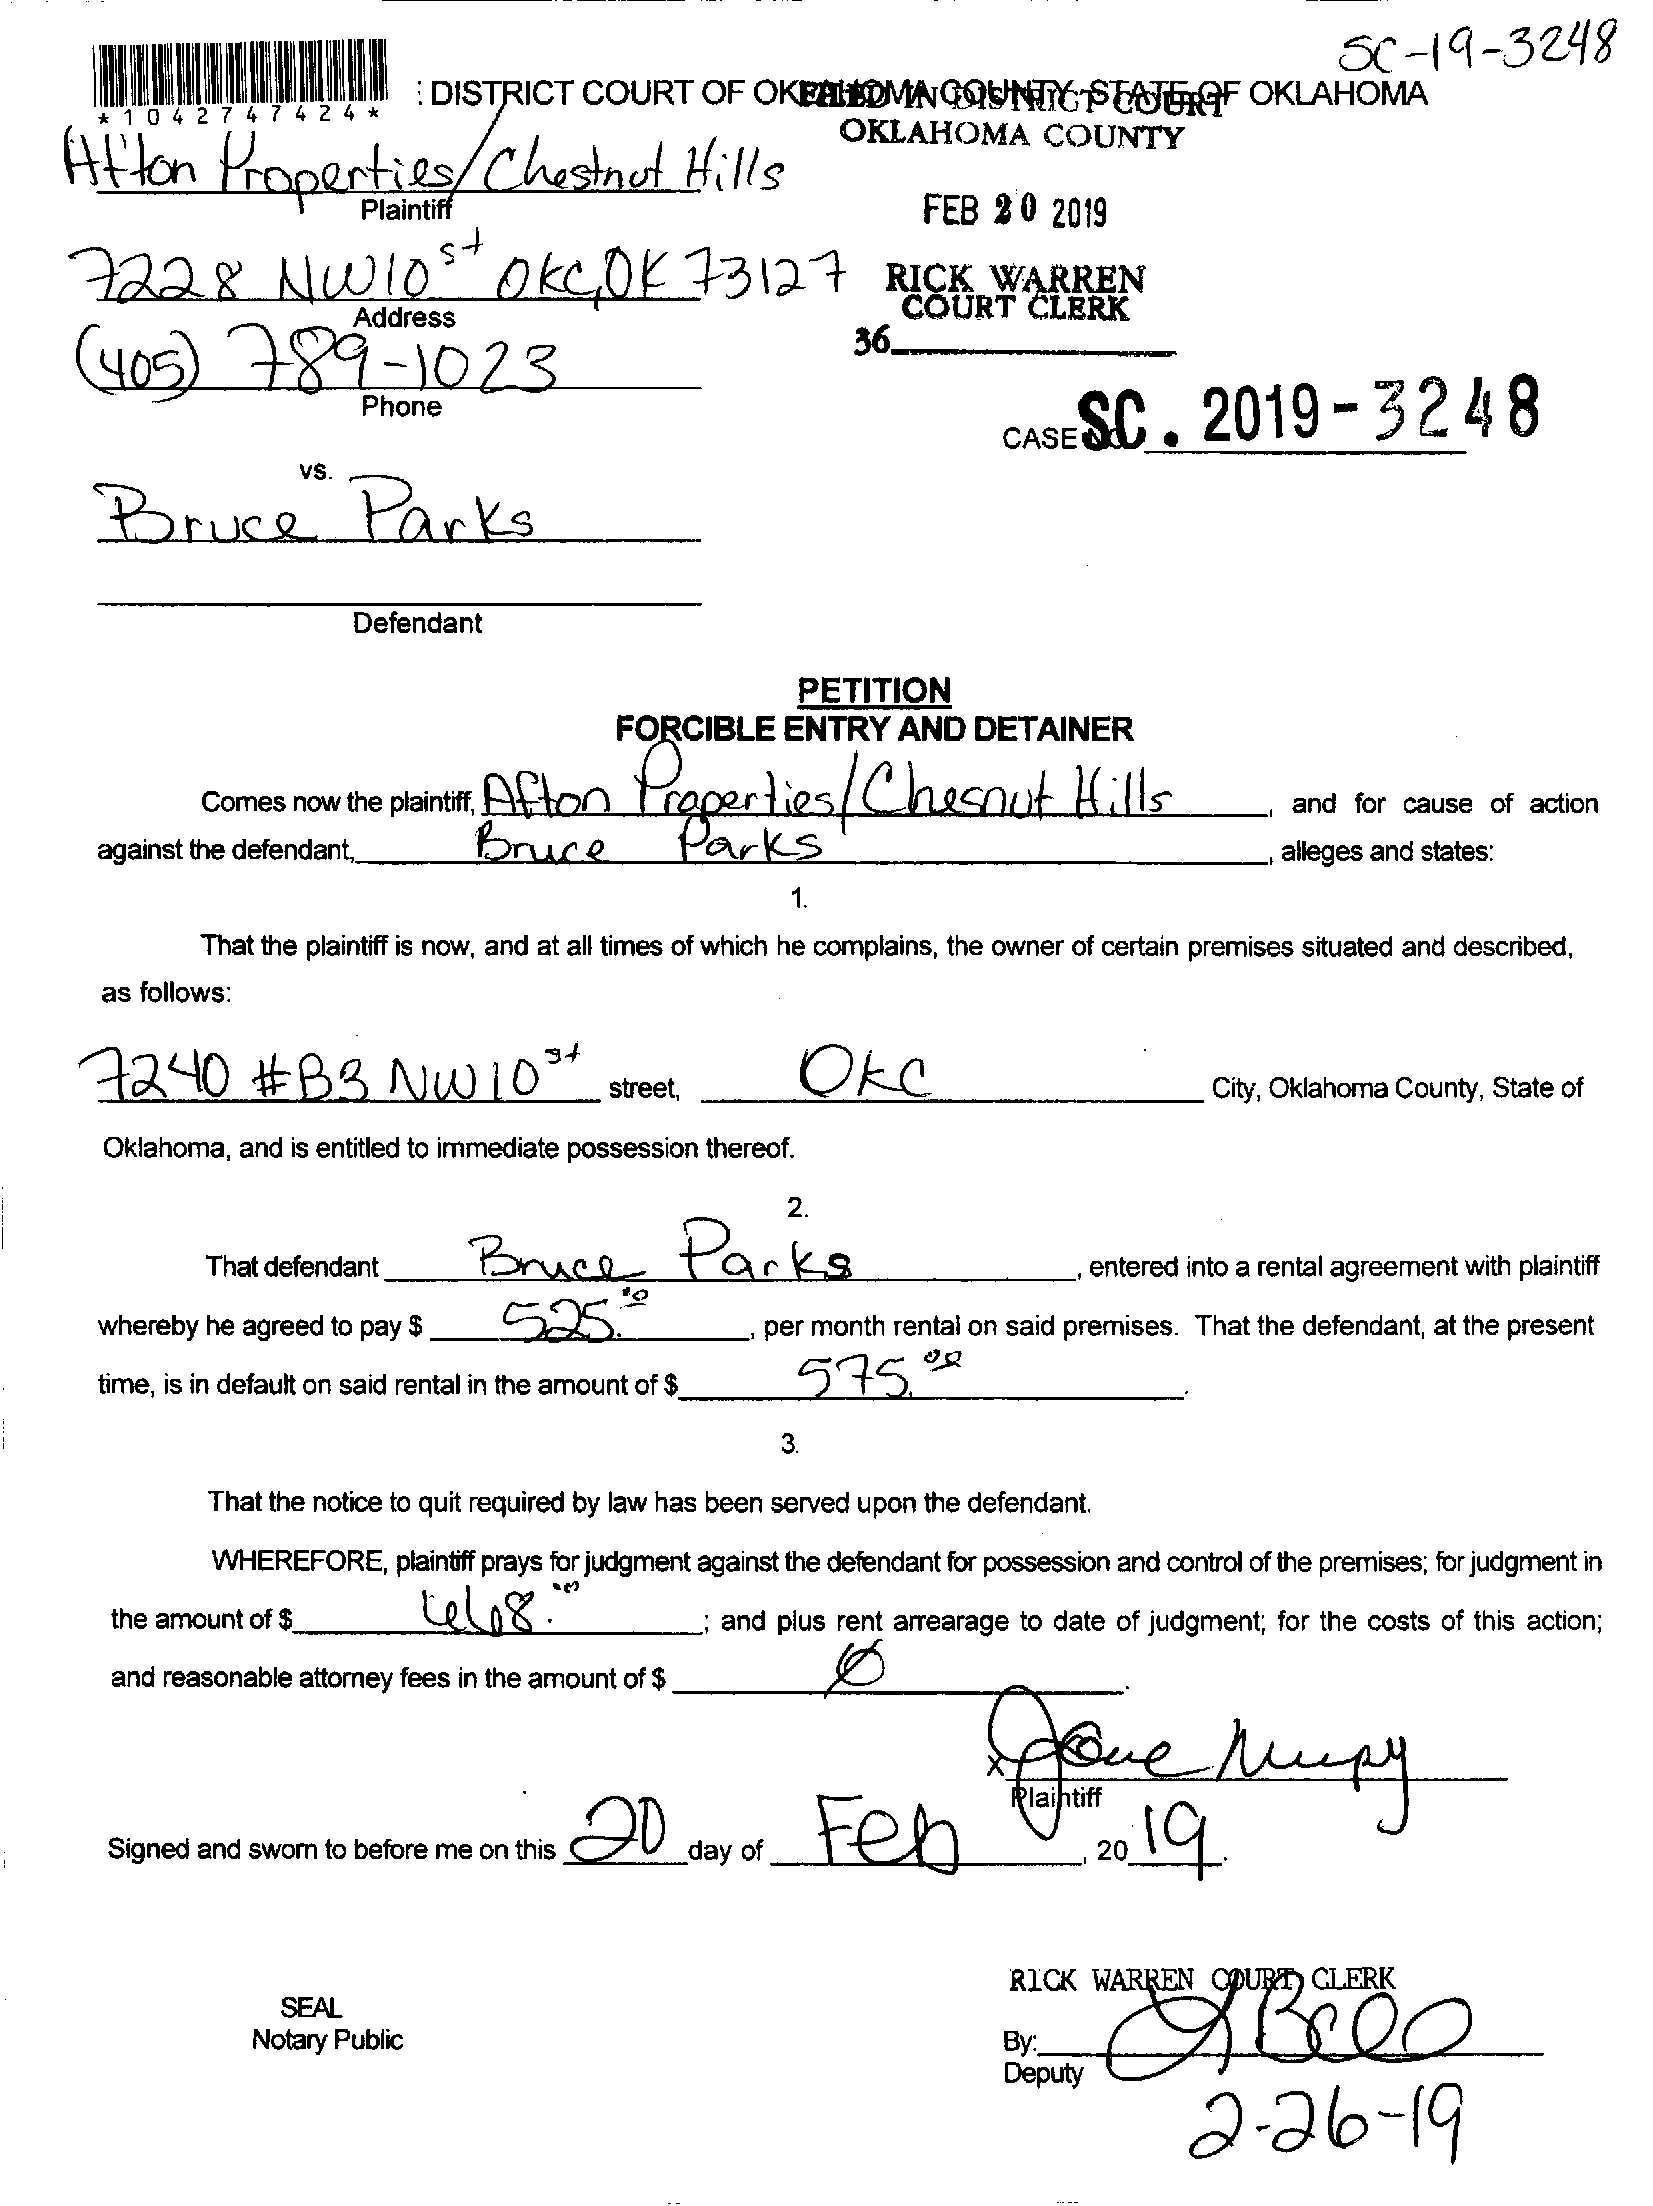 SC-19-3248
*1042747424*
: DISTRICT COURT OF OKLAHOMA COUNTY STATE OF OKLAHOMA
FILED IN DISTRICT COURT
OKLAHOMA COUNTY
Afton Properties/Chestnut Hills
Plaintiff
FEB 20 2019
7228 NW10st OKC,OK 73127
Address
RICK WARREN
COURT CLERK
36
(405) 789-1023
Phone
CASE SC. 2019-3248
vs.
Bruce Parks
Defendant
PETITION
FORCIBLE ENTRY AND DETAINER
Comes now the plaintiff, Afton Properties/Chesnut Hills, and for cause of action
against the defendant, Bruce Parks, alleges and states:
1.
That the plaintiff is now, and at all times of which he complains, the owner of certain premises situated and described,
as follows:
7240 #B3 NW10st street, OKC City, Oklahoma County, State of
Oklahoma, and is entitled to immediate possession thereof.
2.
That defendant Bruce Parks, entered into a rental agreement with plaintiff
whereby he agreed to pay $ 525.00, per month rental on said premises. That the defendant, at the present
time, is in default on said rental in the amount of $ 575.00.
3.
That the notice to quit required by law has been served upon the defendant.
WHEREFORE, plaintiff prays for judgment against the defendant for possession and control of the premises; for judgment in
the amount of $; and plus rent arrearage to date of judgment; for the costs of this action;
and reasonable attorney fees in the amount of $ Ø.
x
Plaintiff
Signed and sworn to before me on this 20 day of Feb, 2019.
RICK WARREN COURT CLERK
SEAL
Notary Public
By:
Deputy
2-26-19